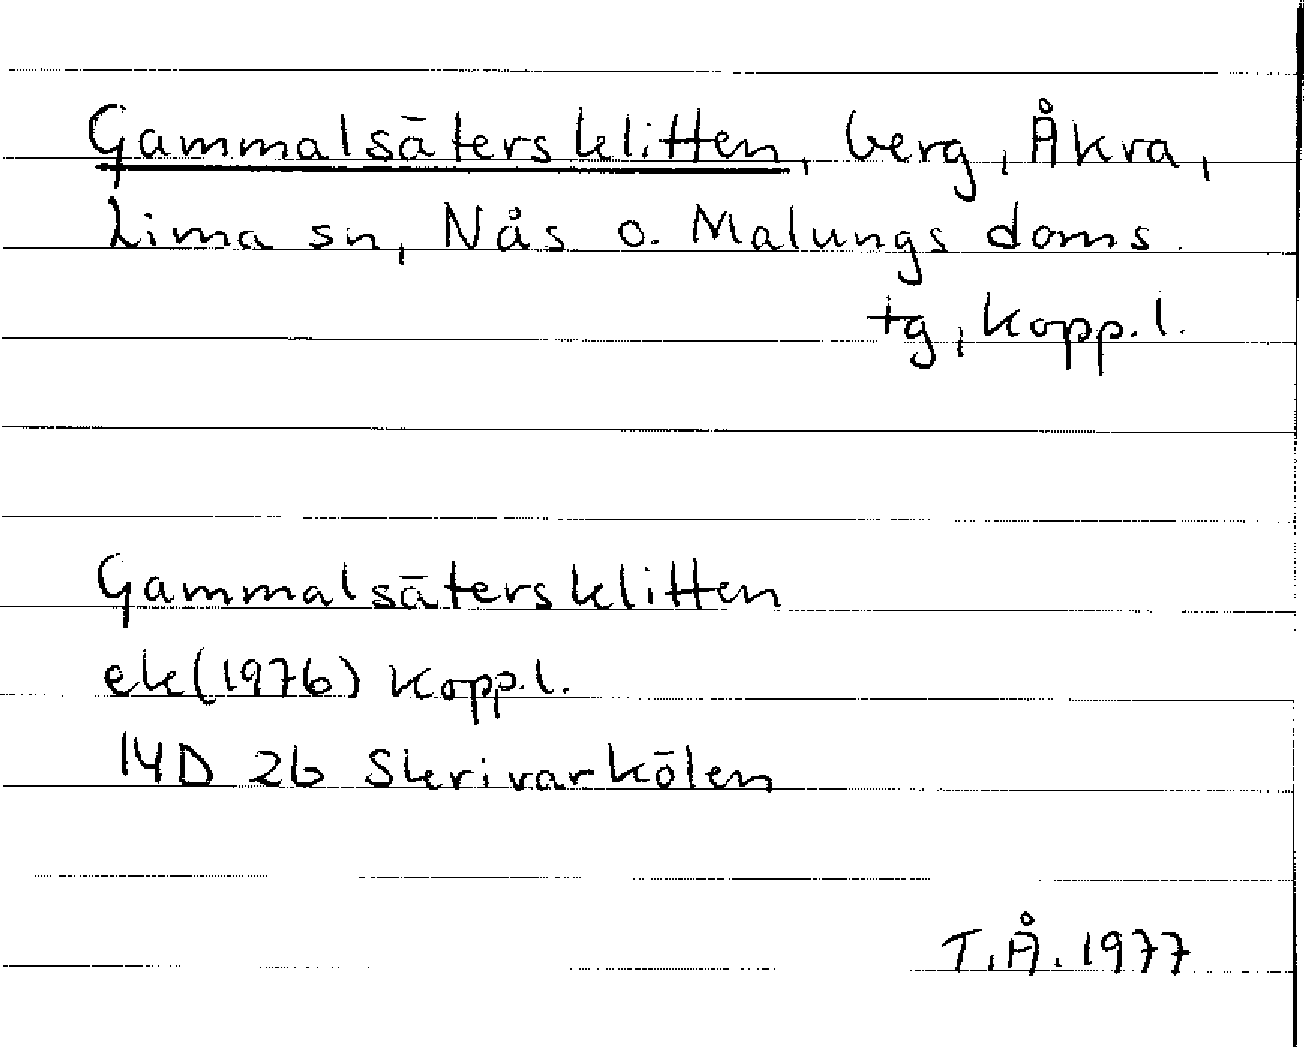 Gammalsätersklitten, berg, Åkra,
Lima sn, Nås o. Malungs doms.
tg, Kopp.l.
Gammalsätersklitten
ek(1976) Kopp.l.
14D 2b Skrivarkölen
T.Å. 1977